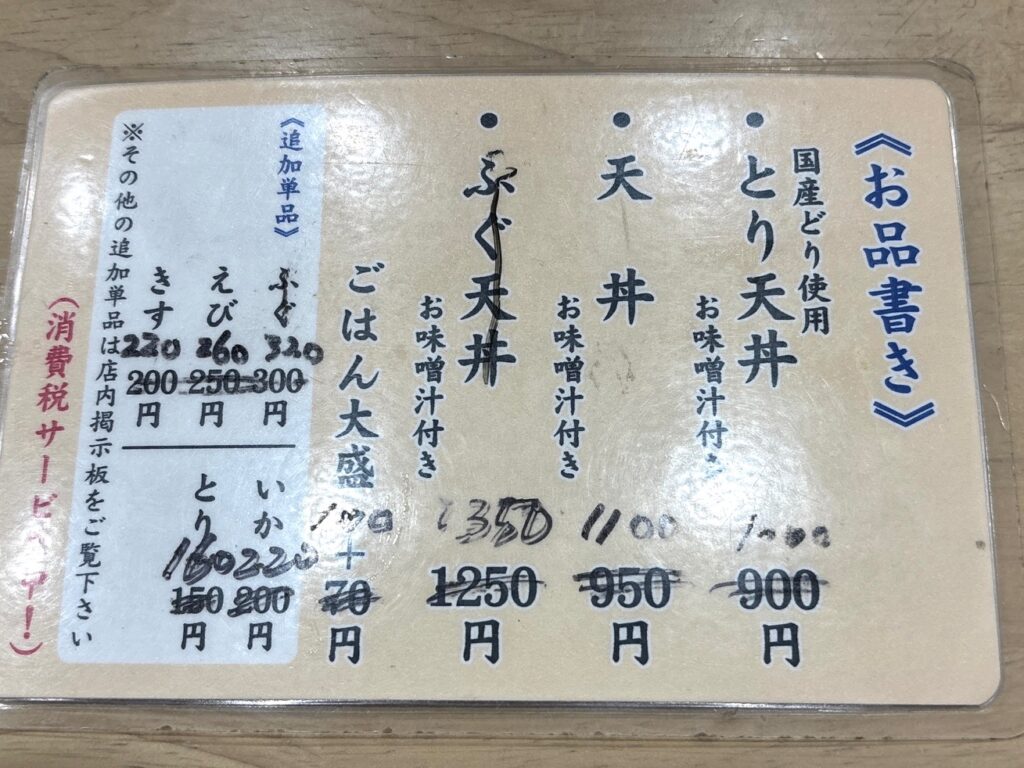 《お品書き》
国産どり使用
●とり天丼
お味噌汁付き
1000
900
円
●天丼
お味噌汁付き
1100
950
円
●ふぐ天丼
お味噌汁付き
1350
1250
円
ごはん大盛
100
+
70
円
《追加単品》
ふぐ
320
300
円
えび
260
250
円
きす
220
200
円
いか
220
200
円
とり
160
150
円
※その他の追加単品は店内掲示板をご覧下さい
(消費税サービ
!)